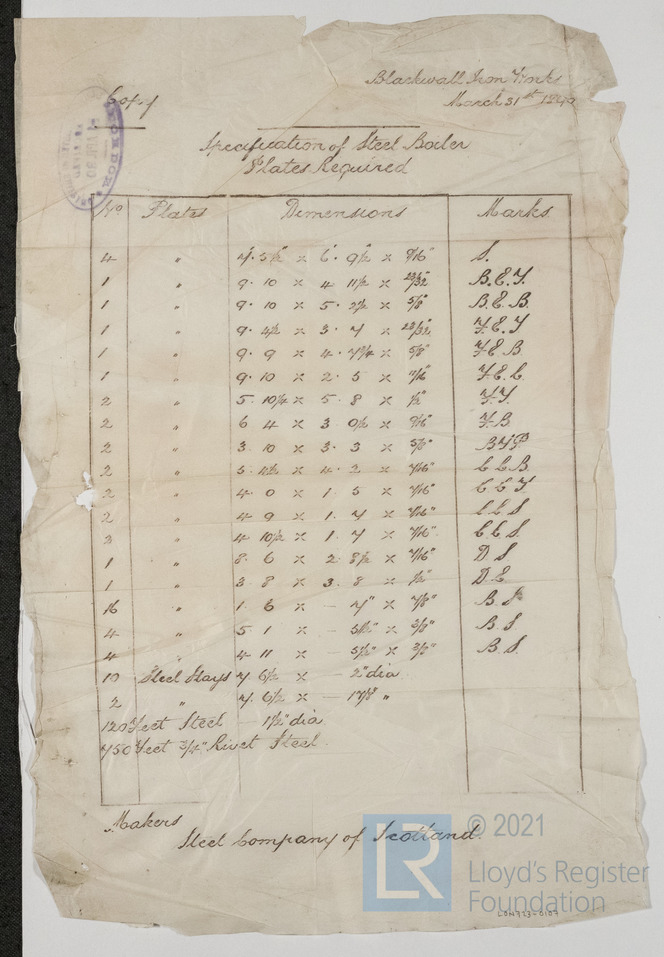 Copy
Blackwall Iron Works
March 31st
Specification of Steel Boiler
Plates Required
No Plates Dimensions Marks
4 " 7'. 5½" x 6'. 9½" x 9/16" S.
1 " 9. 10 x 4 11½ x 23/32" B.E.T.
1 " 9. 10 x 5. 2½ x 5/8" B.E.B.
1 " 9. 4½ x 3. 7 x 23/32" F.E.T
1 " 9. 9 x 4. 7¾ x 5/8" F.E.B
1 " 9. 10 x 2. 5 x 11/16" F.E.C
2 " 5. 10¼ x 5. 8 x ½" F.F.
2 " 6 4 x 3. 0½ x 9/16" F.B
2 " 3. 10 x 3. 3 x 5/8"
2 " 4. 2 x 7/16" C C B
2 " 4. 0 x 1. 5 x 7/16" C C F
2 " 4 9 x 1. 7 x 7/16" C C S
2 " 4 10½ x 1. 7 x 7/16" C C S.
1 " 8. 6 x 2. 8½ x 7/16" D S
1 " 3. 8 x 3. 8 x ½" D.E.
16 " 1. 6 x — 7" x 7/8" B. S
4 " 5 1 x — 5½" x B S
4 " 4 11 x — 5½" x B. S.
10 Steel Stays 7. 6½ x — 2" dia
2 " 7. 6½ x — 1 7/8 "
120 Feet Steel — 1½" dia
750 Feet 3/4" Rivet Steel.
Makers
Steel Company of Scotland.
LR
© 2021
Lloyd's Register
Foundation
LON723-0107